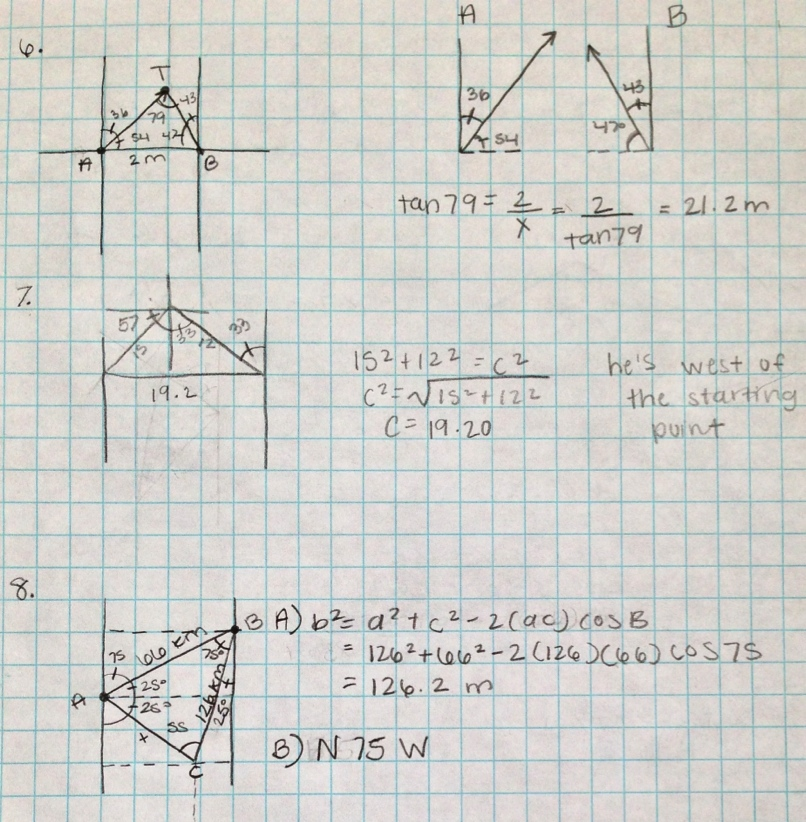 6.
T
36
79
43
54
47
A
2 m
B
A
B
36
54
43
47°
tan 79 = 2/x = 2/tan79 = 21.2 m
7.
57
33
33
15
12
19.2
15² + 12² = c²
c² = √15² + 12²
C = 19.20
he's west of
the starting
point
8.
B
75
66 km
75°
A
25°
25°
126 km
25°
55
x
C
A) b² = a² + c² - 2(ac) cos B
= 126² + 66² - 2(126)(66) cos 75
= 126.2 m
B) N 75 W